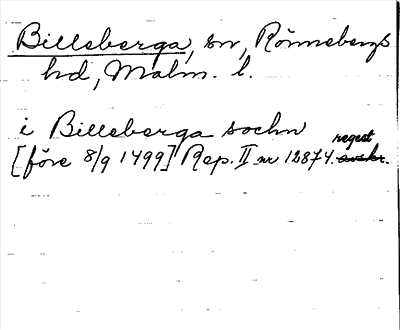 Billeberga, sn, Rönnebergs
hd, Malm. l.
i Billeberga sochn
regest
[före 8/9 1499] Rep. II nr 12874. avskr.